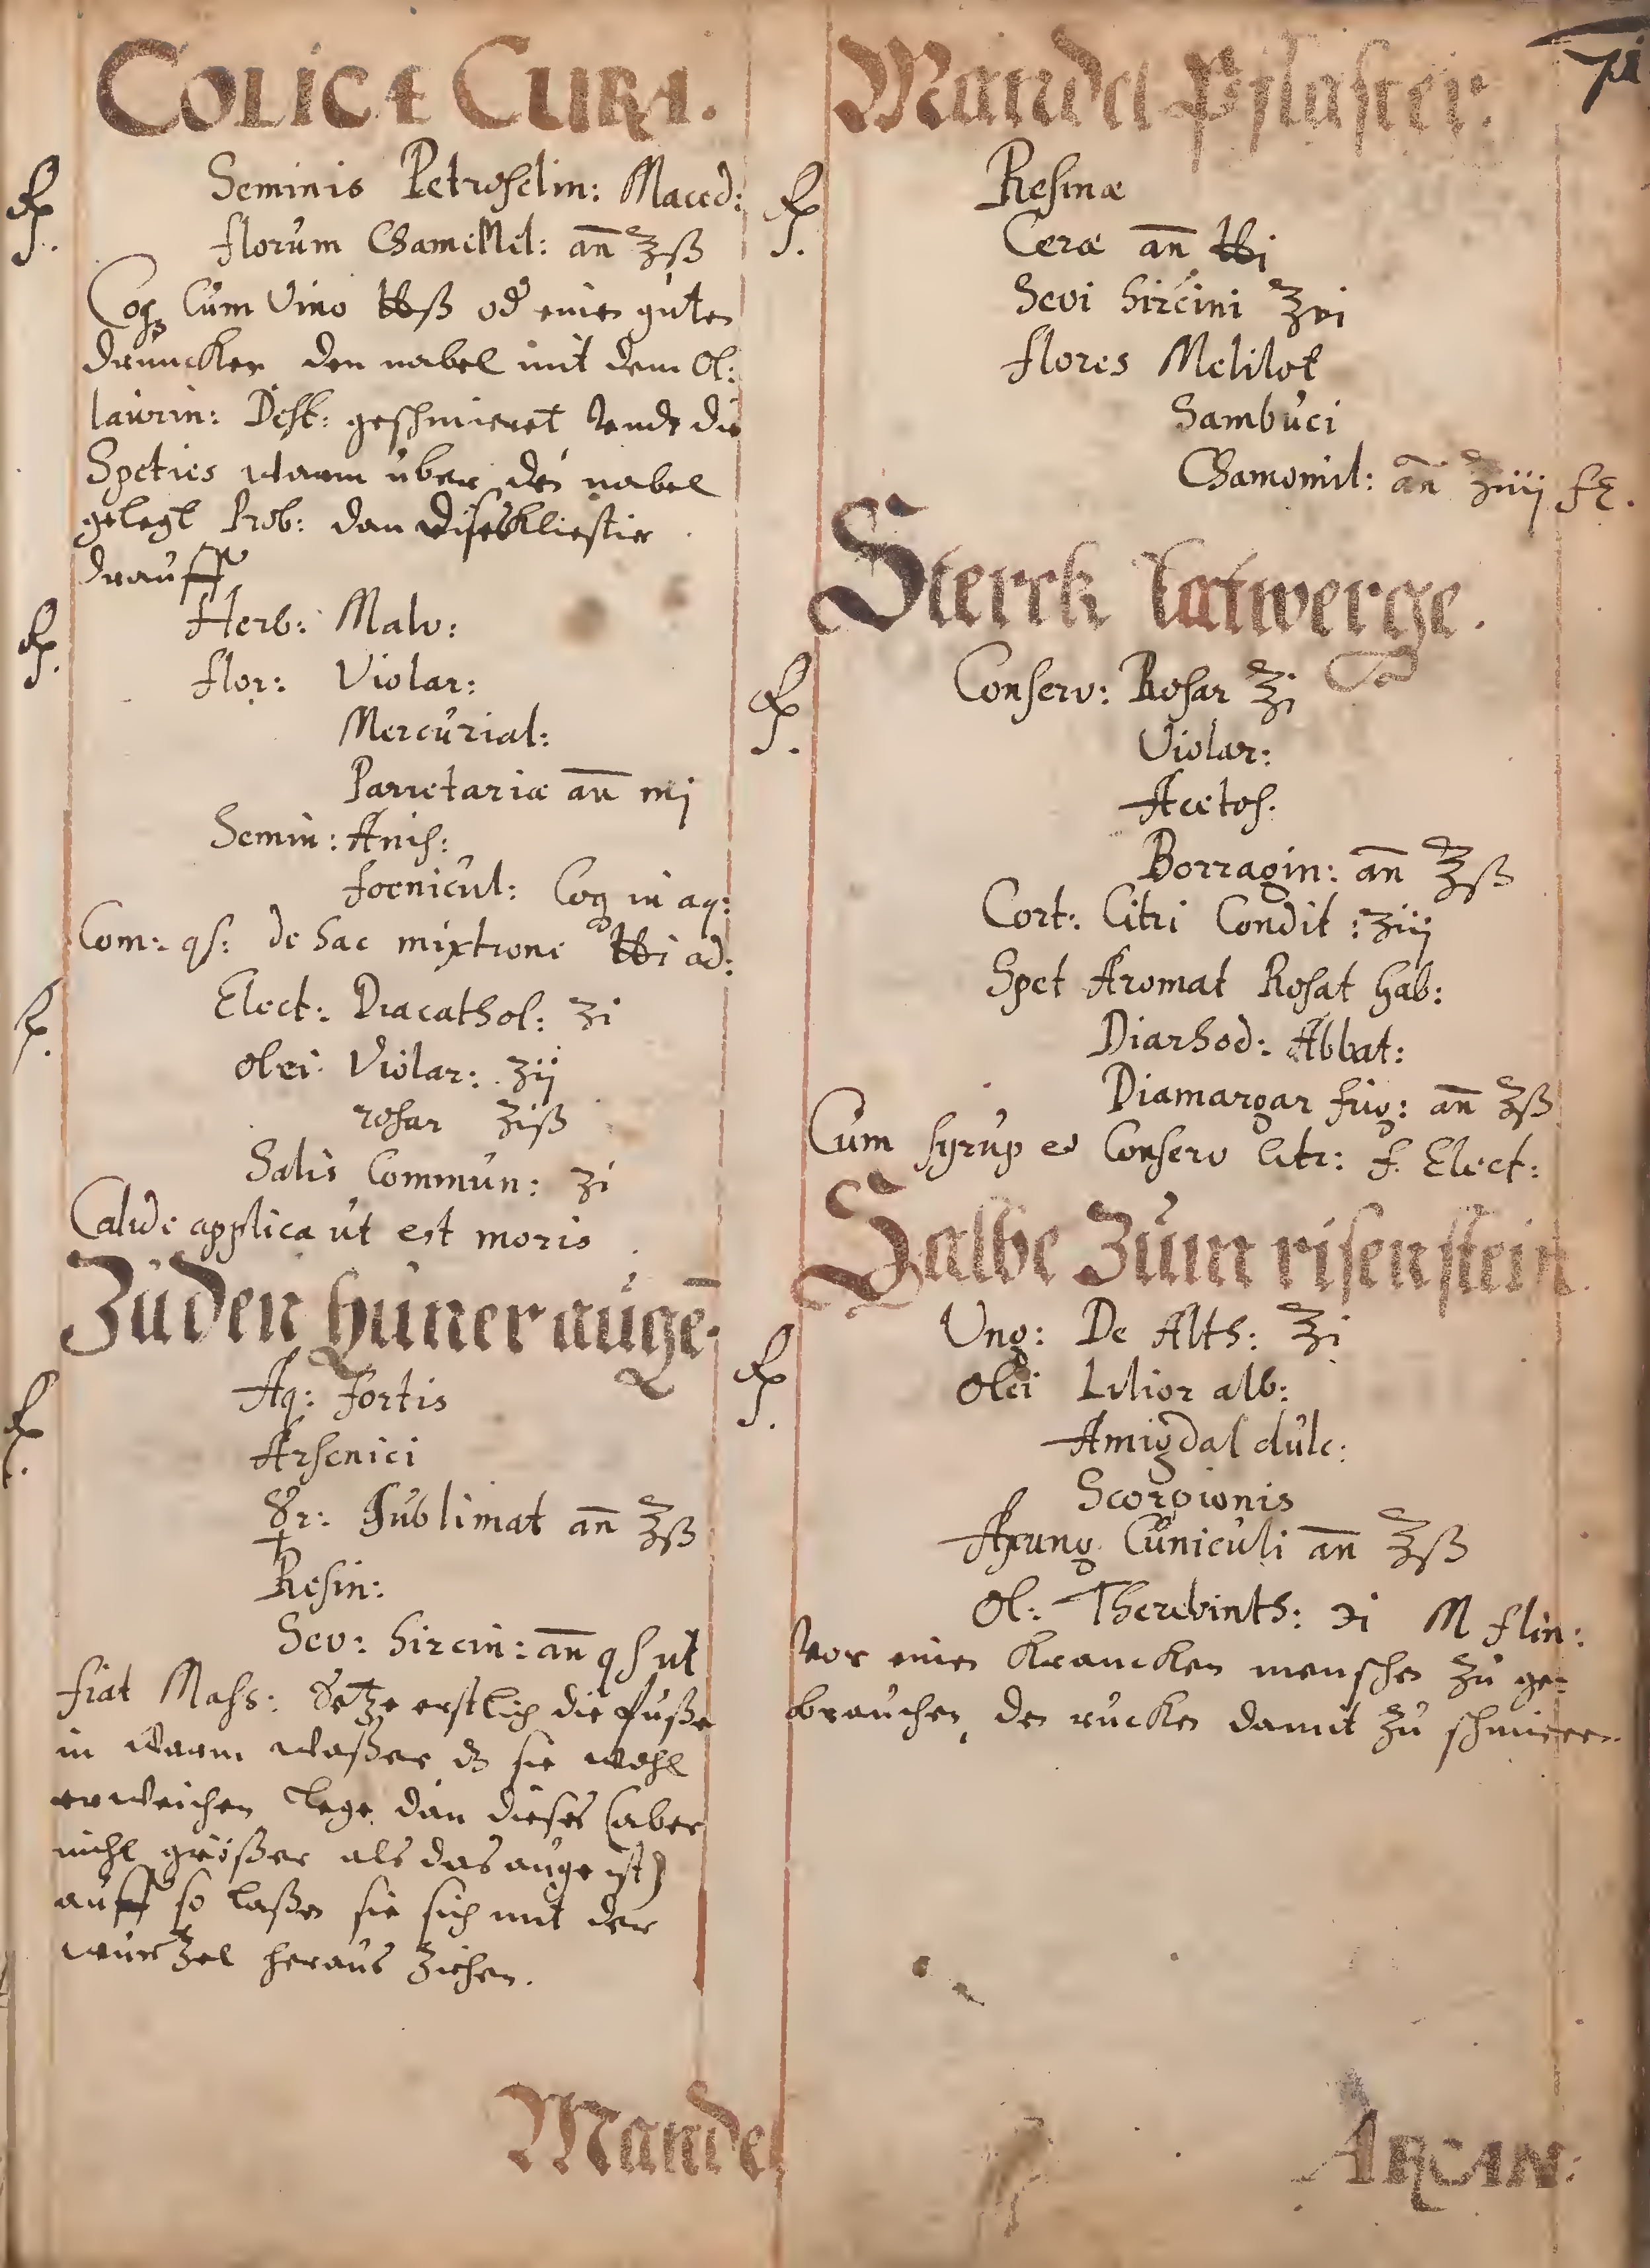 COLICÆ CURA.
℞. Seminis Petroselin: Maced:
florum Chamemel: an̄ ℥ß
Coq Cum Vino ℔ß od einen guten
druncken den nabel mit dem Ol:
laurin: Dest: geschmieret vnd die
Speties warm über den nabel
gelegt Prob: dan dises Kliestier
drauff
℞. Herb: Malv:
flor: Violar:
Mercurial:
Parietariæ an̄ mj
Semin: Anis:
foenicul: Coq in aq:
Com: qs: de hac mixtione ℔i ad:
℞. Elect: Diacathol: ʒi
olei Violar: ʒij
rosar ʒiß
Salis Commun: ʒi
Calide applica ut est moris
Zu den Hüneraugē.
℞. Aq: fortis
Arsenici
☿r: Sublimat an̄ ℥ß
Resin:
Sev: hircin: an̄ qs ut
fiat Mass: Setze erstlich die füße
in warm waßer dz sie wohl
erweichen lege dan dieses (aber
nicht größer als das auge ist)
auff so laßen sie sich mit der
wurtzel heraus ziehen.
Mandel
71
Mandel Pflaster.
℞. Resinæ
Ceræ an̄ ℔j
Sevi hircini ℥vi
flores Melilot
Sambuci
Chamomil: an̄ ʒiiij
Sterck Latwerge.
℞. Conserv: Rosar ℥j
Violar:
Acetos:
Borragin: an̄ ℥ß
Cort: Citri Condit: ʒiij
Spet Aromat Rosat Gab:
Diarhod: Abbat:
Diamargar frig: an̄ ℥ß
Cum syrup e Conserv Citr: f. Elect:
Salbe zum risenstein.
℞. Ung: De Alth: ℥i
Olei Lilior alb:
Amigdal dulc:
Scorpionis
Axung Cuniculi an̄ ℥ß
Ol: Therebinth: ℈i M f lin:
vor einen Krancken menschen zu ge=
brauchen, den rucken damit zu schmieren.
ARCAN: